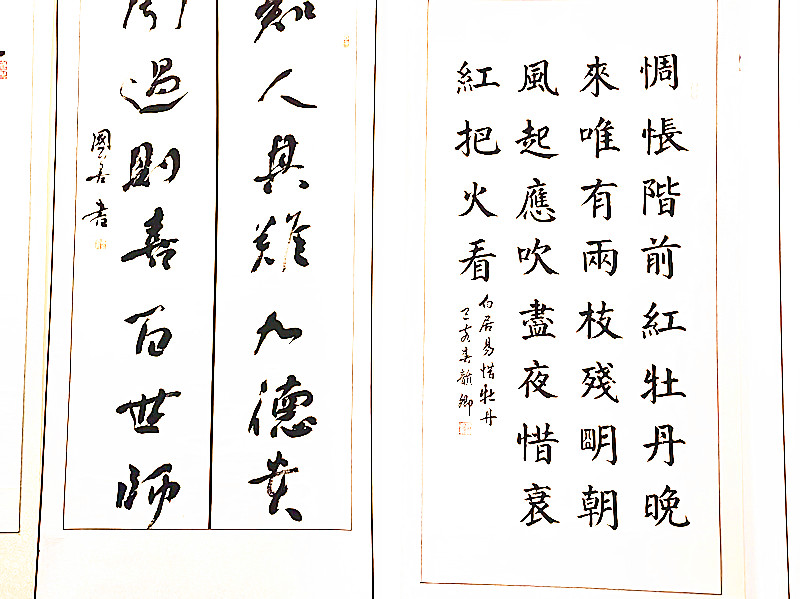 惆悵階前紅牡丹晚
來唯有兩枝殘明朝
風起應吹盡夜惜衰
紅把火看
白居易惜牡丹
知人其難九德貴
聞過則喜百世師